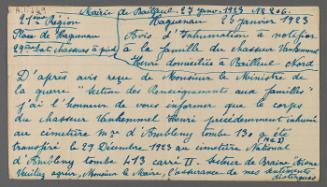 Mairie de Bailleul 27 janv. 1923 Nº 206.
21ème Région
Haguenau 25 janvier 1923
Place de Haguenau
Avis d'Exhumation à notifier
29ème Bat. chasseurs à pied
à la famille du chasseur Vankemmel
Henri domiciliée à Bailleul Nord
D'après avis reçu de Monsieur le Ministre de
la guerre "Section des Renseignements aux familles"
j'ai l'honneur de vous informer que le corps
du chasseur Vankemmel Henri précédemment inhumé
au cimetière d'Ambleny tombe 130 a été
transféré le 29 Décembre 1922 au cimetière National
d'Ambleny tombe 413 carré II. Secteur de Braine (Aisne
Veuillez agréer, Monsieur le Maire, l'assurance de mes sentiments
distingués